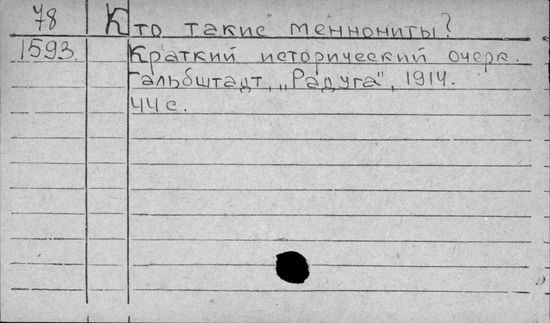 78 Кто такие меннониты?
1593. Краткий исторический очерк.
Гальбштадт, „Радуга", 1914.
44 с.